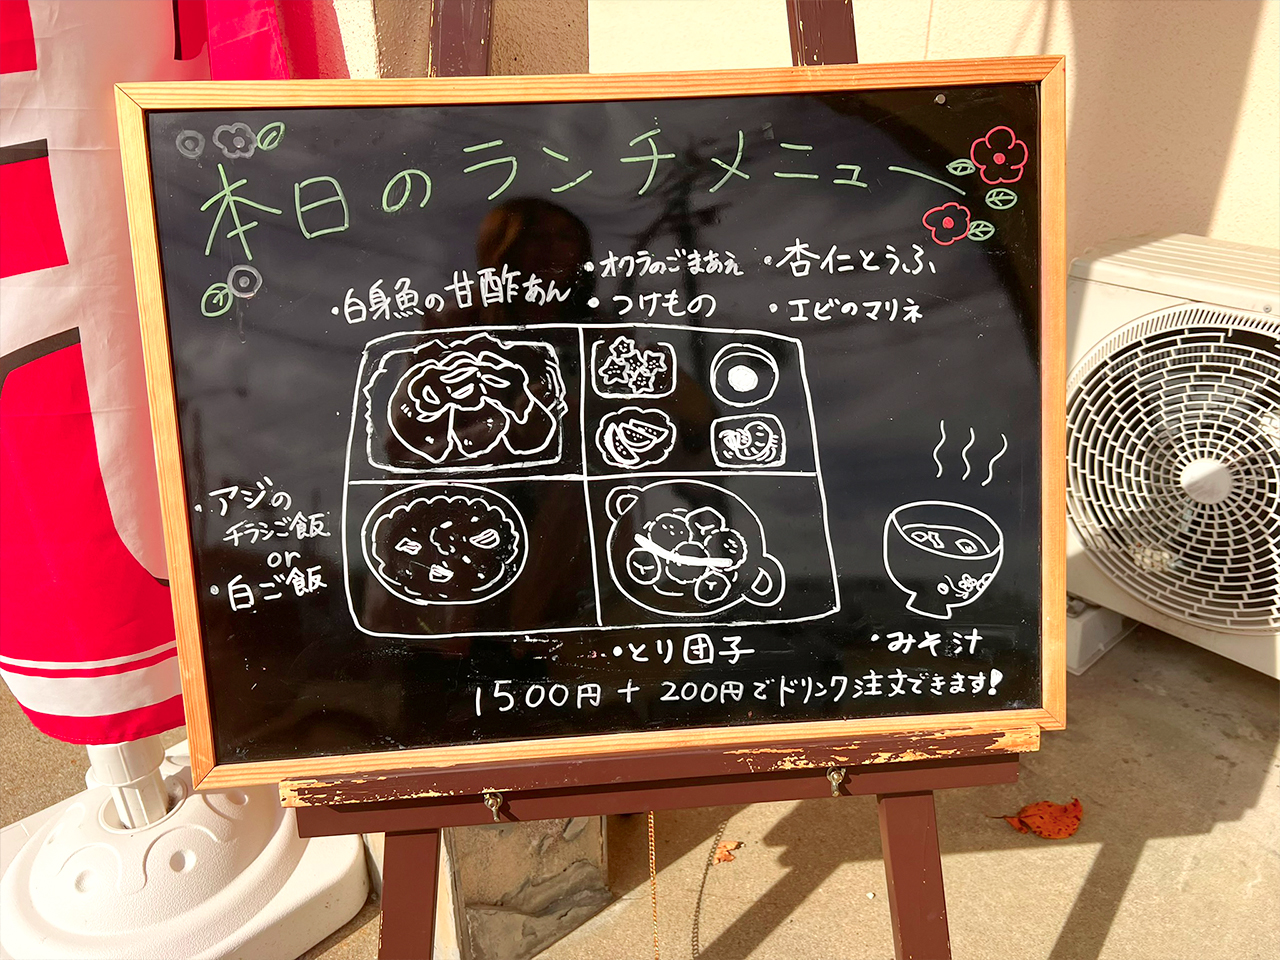 本日のランチメニュー
・白身魚の甘酢あん
・オクラのごまあえ
・つけもの
・杏仁とうふ
・エビのマリネ
・アジの
チラシご飯
or
・白ご飯
・とり団子
・みそ汁
1500円 + 200円でドリンク注文できます!